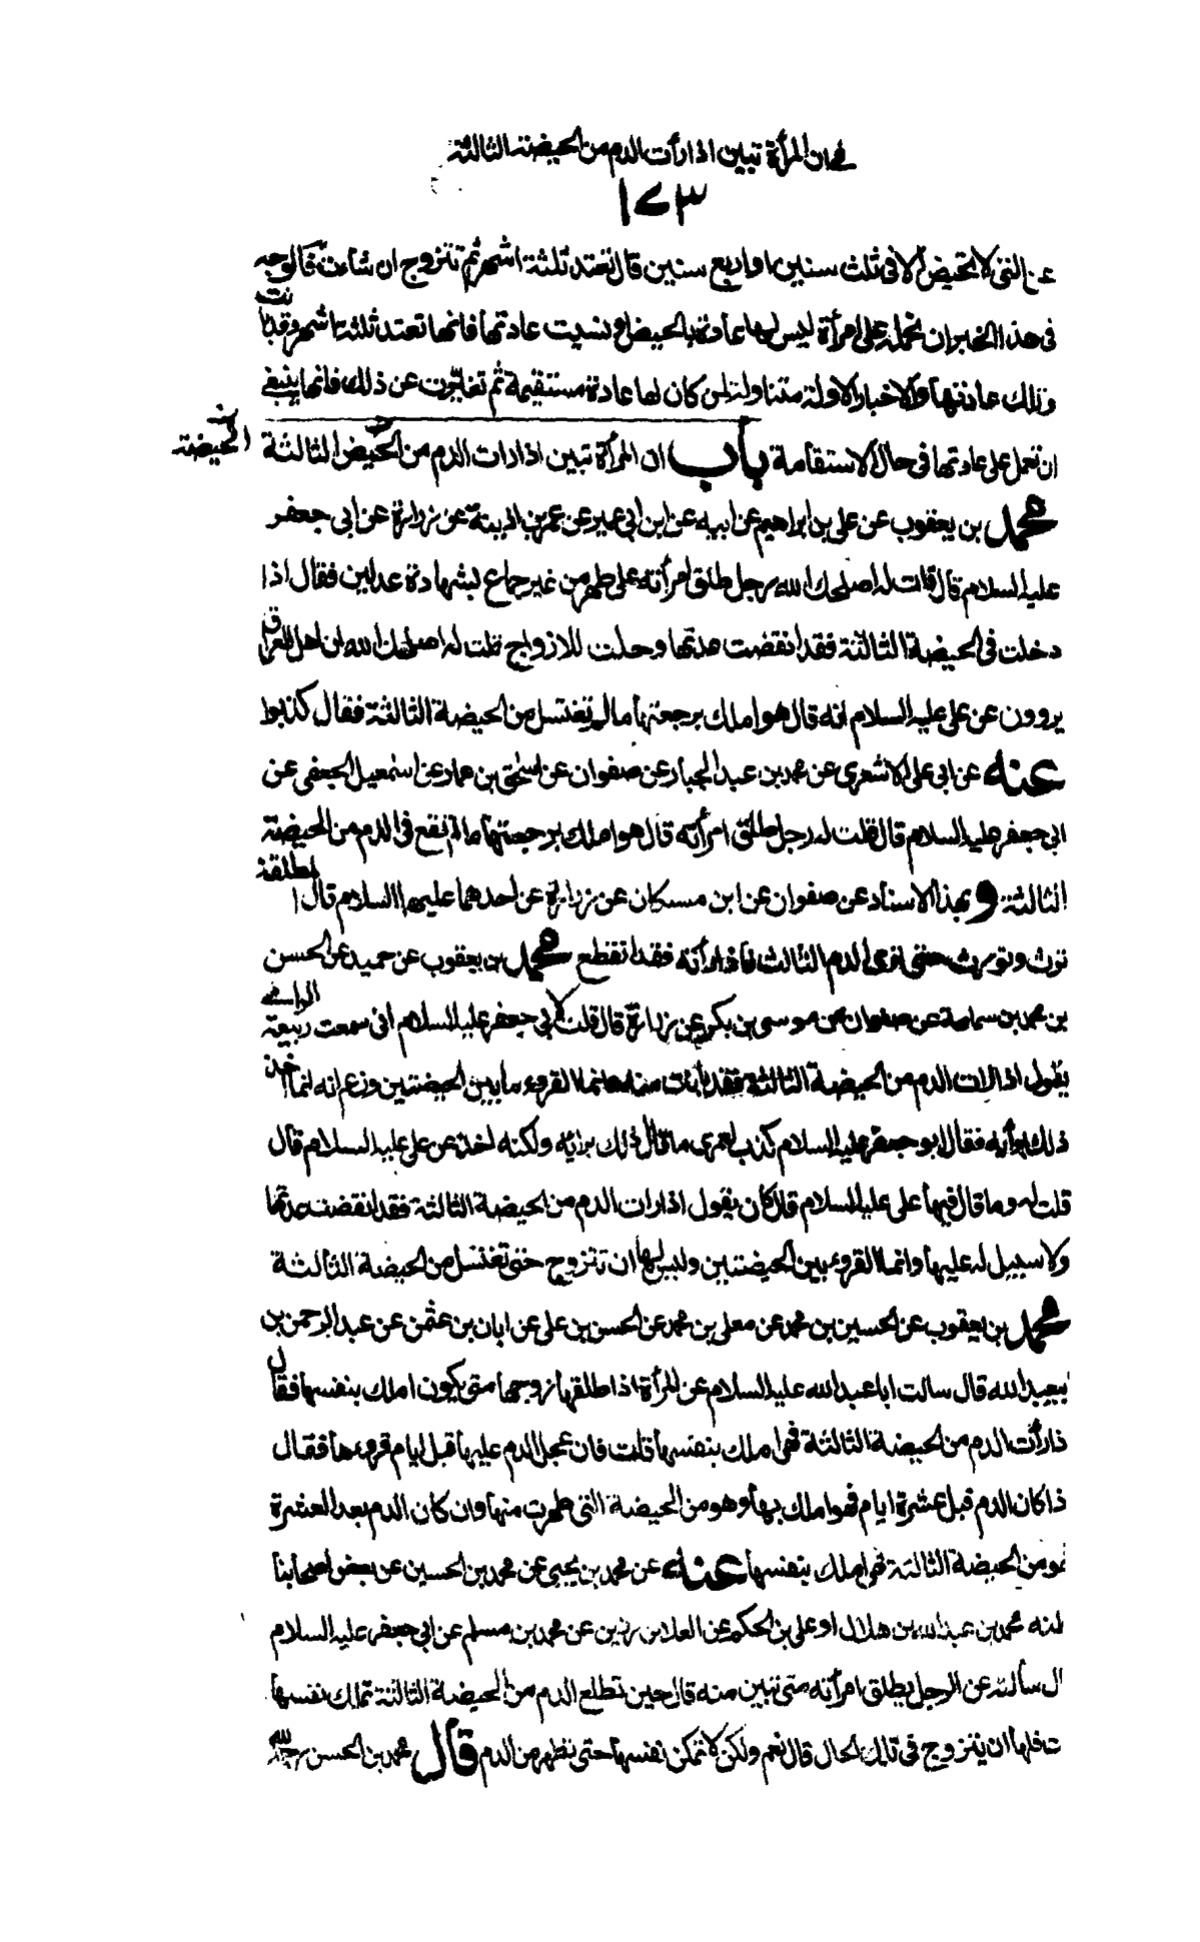 في ان المرأة تبين اذا رأت الدم من الحيضة الثالثة
١٧٣
عن التى لا تحيض الا فى ثلث سنين او اربع سنين قال تعتد ثلثة اشهر ثم تتزوج ان شاءت فالوجه
فى هذا الخبر ان نحمله على امرأة ليس لها عادة بالحيض او نسيت عادتها فانها تعتد ثلثة اشهر وقد بينت
وتلك عادتها والاخبار الاولة متناولة لمن كان لها عادة مستقيمة ثم تغيرت عن ذلك فانها ينبغى
ان تعمل على عادتها فى حال الاستقامة باب ان المرأة تبين اذا رات الدم من الحيض الثالثة
الحيضة
محمد بن يعقوب عن على بن ابراهيم عن ابيه عن ابن ابى عمير عن عمر بن اذينة عن زرارة عن ابى جعفر
عليه السلام قال قلت له اصلحك الله رجل طلق امرأته على طهر من غير جماع بشهادة عدلين فقال اذا
دخلت فى الحيضة الثالثة فقد انقضت عدتها وحلت للازواج قلت له اصلحك الله ان اهل العراق
يروون عن على عليه السلام انه قال هو املك برجعتها ما لم تغتسل من الحيضة الثالثة فقال كذبوا
عنه عن ابى على الاشعرى عن محمد بن عبد الجبار عن صفوان عن اسحق بن عمار عن اسمعيل الجعفى عن
ابى جعفر عليه السلام قال قلت له رجل طلق امرأته قال هو املك برجعتها ما لم تقع فى الدم من الحيضة
الثالثة وبهذا الاسناد عن صفوان عن ابن مسكان عن زرارة عن احدهما عليهما السلام قال المطلقة
ترث وتورث حتى ترى الدم الثالث فاذا رأته فقد انقطع محمد بن يعقوب عن حميد عن الحسن
بن محمد بن سماعة عن صفوان عن موسى بن بكر عن زرارة قال قلت لابى جعفر عليه السلام انى سمعت ربيعة الراى
يقول اذا رات الدم من الحيضة الثالثة فقد بانت منه وانما القرء ما بين الحيضتين وزعم انه انما اخذ
ذلك برأيه فقال ابو جعفر عليه السلام كذب لعمرى ما قال ذلك برايه ولكنه اخذه عن على عليه السلام قال
قلت له وما قال فيها على عليه السلام قال كان يقول اذا رات الدم من الحيضة الثالثة فقد انقضت عدتها
ولا سبيل له عليها وانما القرء بين الحيضتين وليس لها ان تتزوج حتى تغتسل من الحيضة الثالثة
محمد بن يعقوب عن الحسين بن محمد عن معلى بن محمد عن الحسن بن على عن ابان بن عثمن عن عبد الرحمن بن
ابيعبد الله قال سالت ابا عبد الله عليه السلام عن المرأة اذا طلقها زوجها متى يكون املك بنفسها فقال
ذا رأت الدم من الحيضة الثالثة فهى املك بنفسها قلت فان عجل الدم عليها قبل ايام قروءها فقال
ذا كان الدم قبل عشرة ايام فهو املك بها وهو من الحيضة التى طهرت منها وان كان الدم بعد العشرة
فهو من الحيضة الثالثة فهى املك بنفسها عنه عن محمد بن يحيى عن محمد بن الحسين عن بعض اصحابنا
ظنه محمد بن عبد الله بن هلال او على بن الحكم عن العلا بن رزين عن محمد بن مسلم عن ابى جعفر عليه السلام
ال سألته عن الرجل يطلق امرأته متى تبين منه قال حين تطلع الدم من الحيضة الثالثة تملك نفسها
ت فلها ان يتزوج فى تلك الحال قال نعم ولكن لا تمكن نفسها حتى تطهر من الدم قال محمد بن الحسن رحمه الله